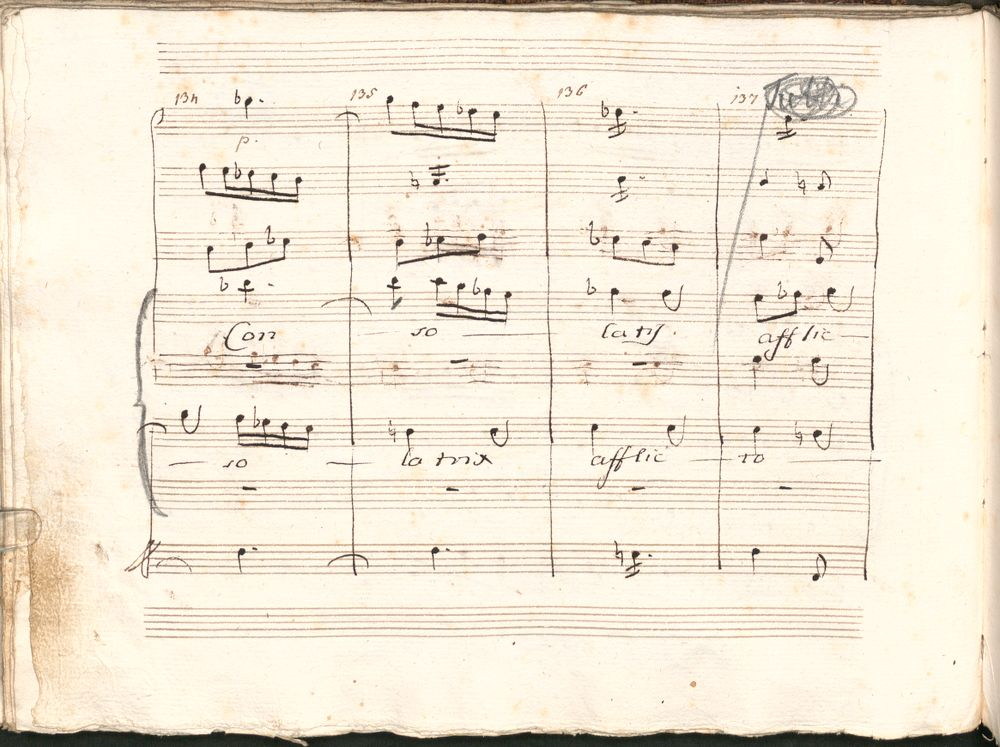 134 135 136 137 Tutti
p.
Con — so — latri afflic —
— so — la trix afflic — to —